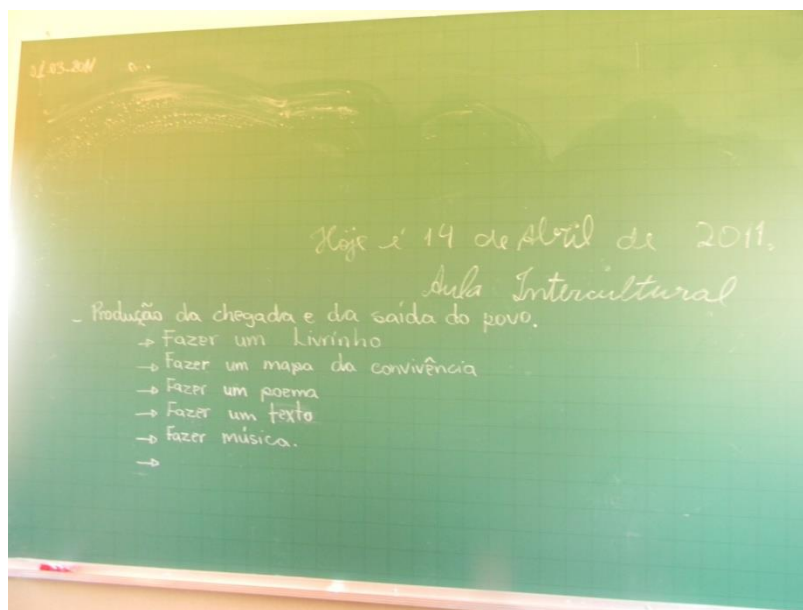 31-03-2011
Hoje é 14 de Abril de 2011.
Aula Intercultural
- Produção da chegada e da saída do povo.
→ Fazer um Livrinho
→ Fazer um mapa da convivência
→ Fazer um poema
→ Fazer um texto
→ Fazer música.
→